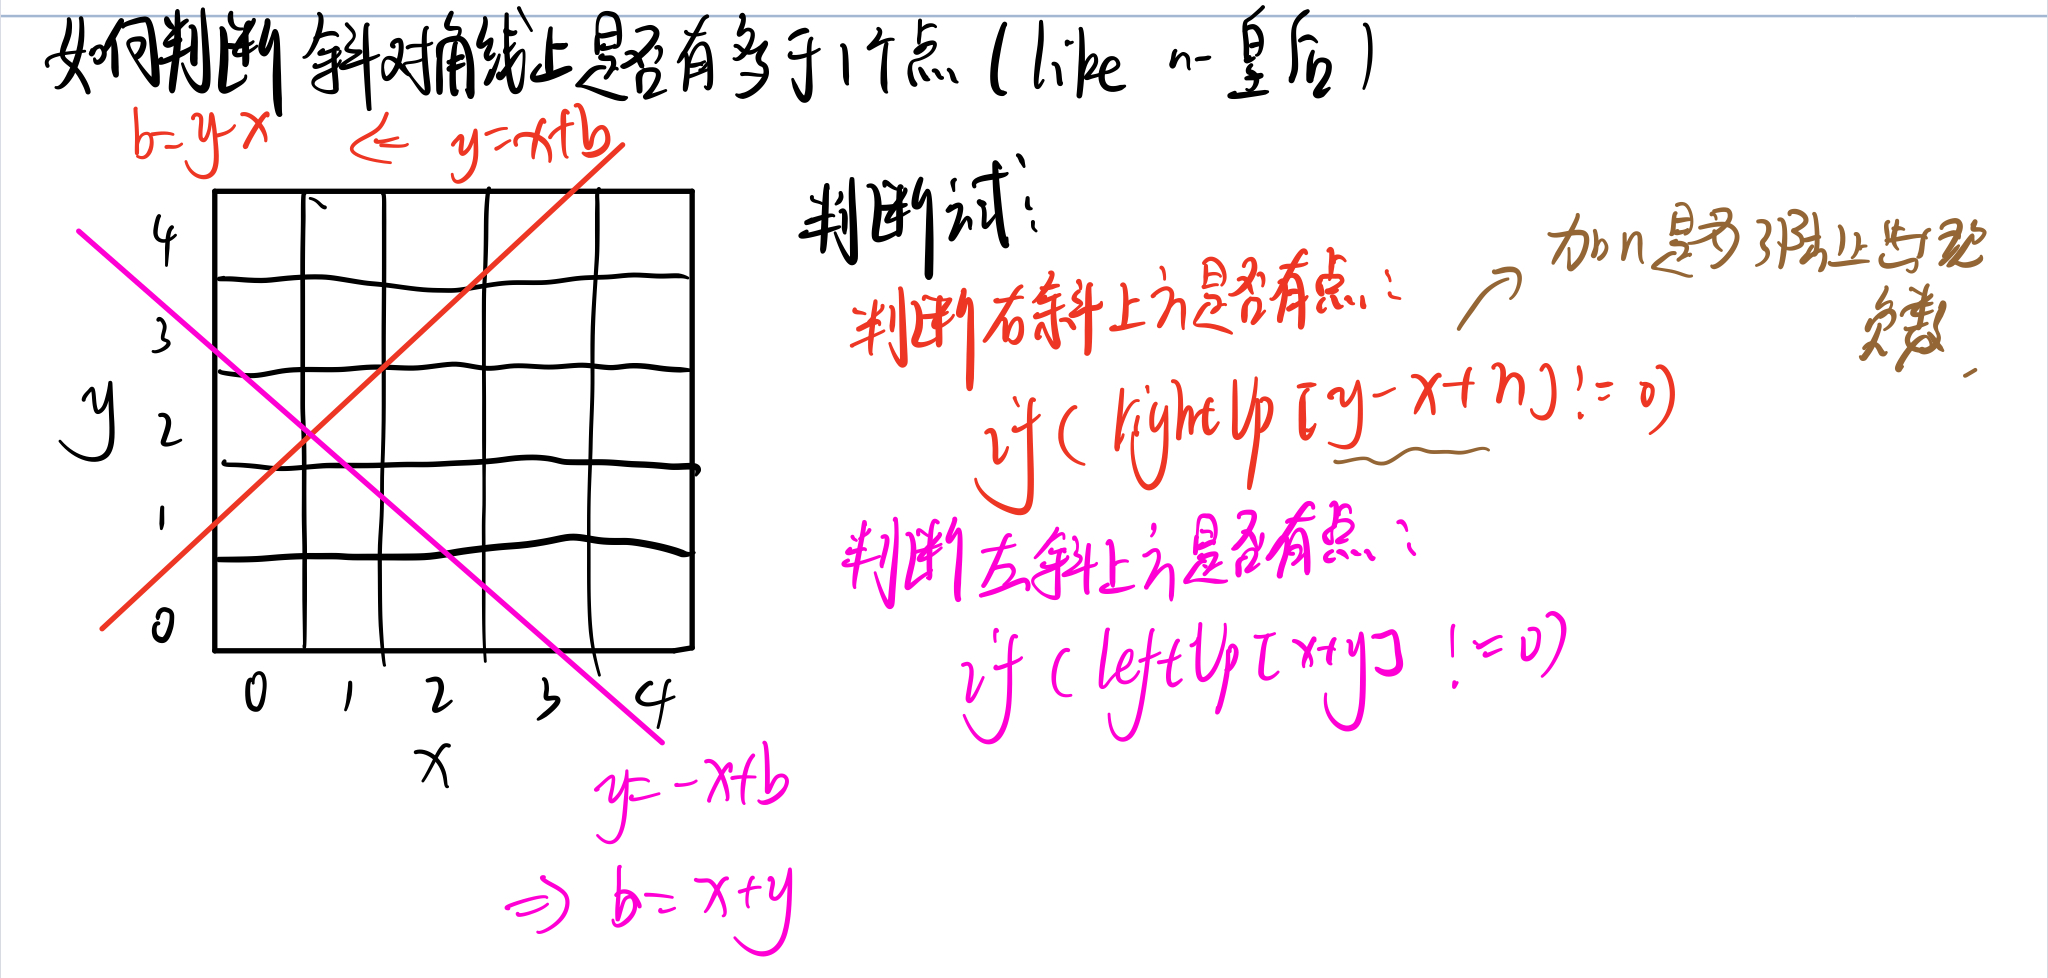 如何判断斜对角线上是否有多于1个点 (like n-皇后)
b=y-x ⇐ y=x+b
4
3
2
1
0
y
0 1 2 3 4
x
y=-x+b
⇒ b=x+y
判断试:
判断右斜上方是否有点:
if(rightUp[y-x+n]!=0)
加n是为了防止出现
负数.
判断左斜上方是否有点:
if(leftUp[x+y] !=0)